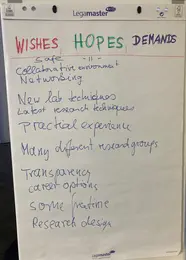 Legamaster
WISHES HOPES DEMANDS
safe -11-
collaborative environment
Networking
New lab techniques
Latest research techniques
Practical experience
Many different research groups
Transparency
career options
some freetime
Research design